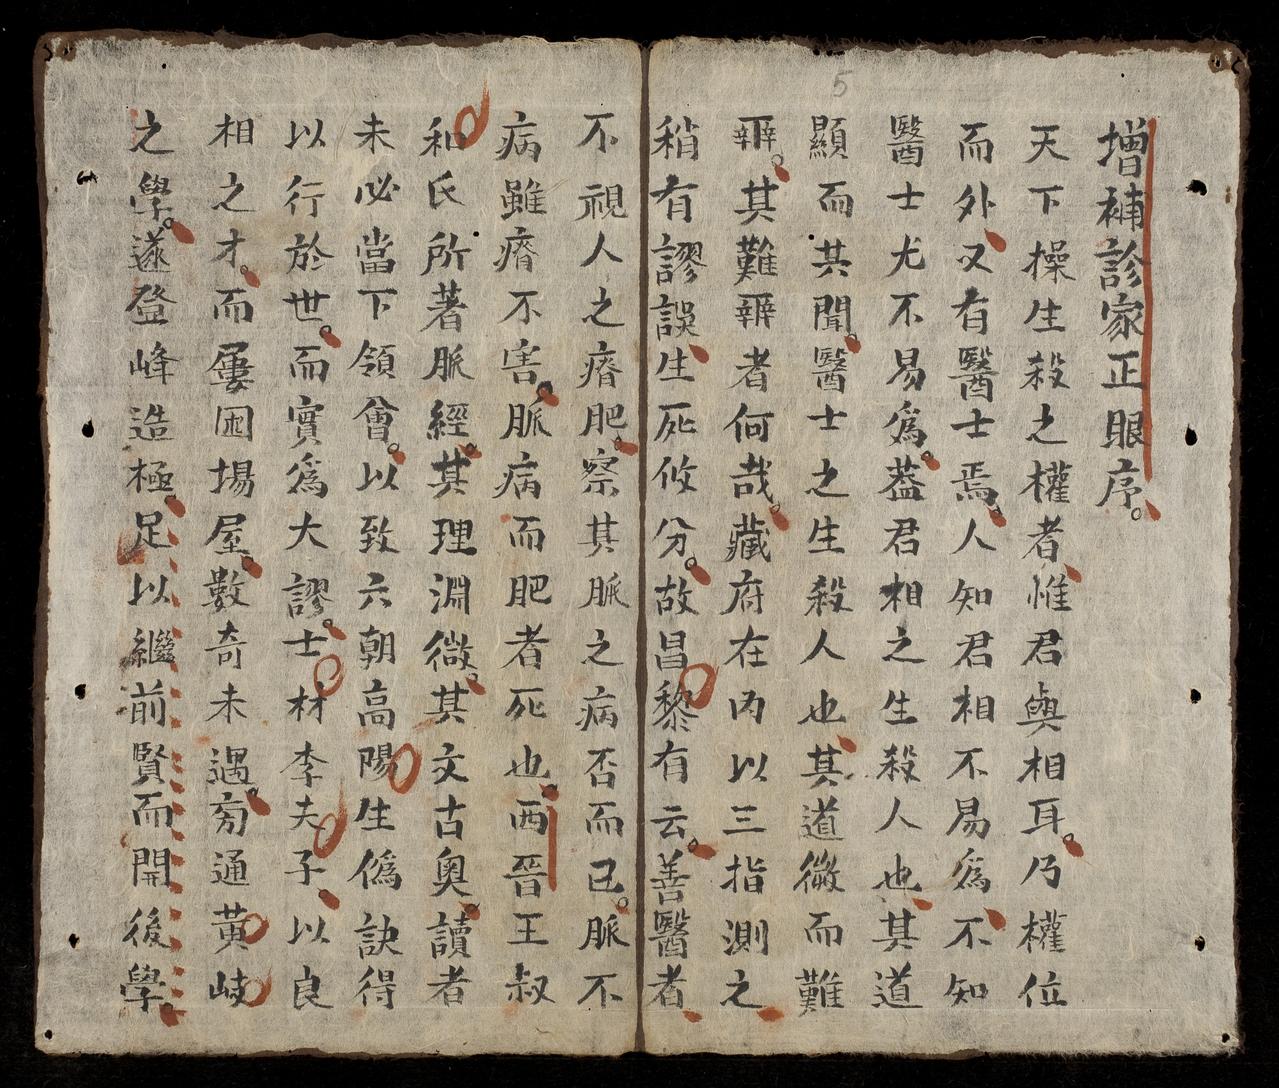 5
增補診家正眼序。
天下操生殺之權者惟君與相耳。乃權位
而外又有醫士焉。人知君相不易爲不知
醫士尤不易爲。葢君相之生殺人也其道
顯而其聞。醫士之生殺人也其道微而難
辧。其難辧者何哉。藏府在內以三指測之
稍有謬誤生死攸分。故昌黎有云。善醫者
不視人之瘠肥。察其脈之病否而已。脈不
病雖瘠不害。脈病而肥者死也。西晉王叔
和氏所著脈經。其理淵微。其文古奧。讀者
未必當下領會。以致六朝高陽生僞訣得
以行於世。而實爲大謬。士材李夫子以良
相之才。而屢困場屋。數奇未遇。旁通黃岐
之學。遂登峰造極。足以繼前賢而開後學。